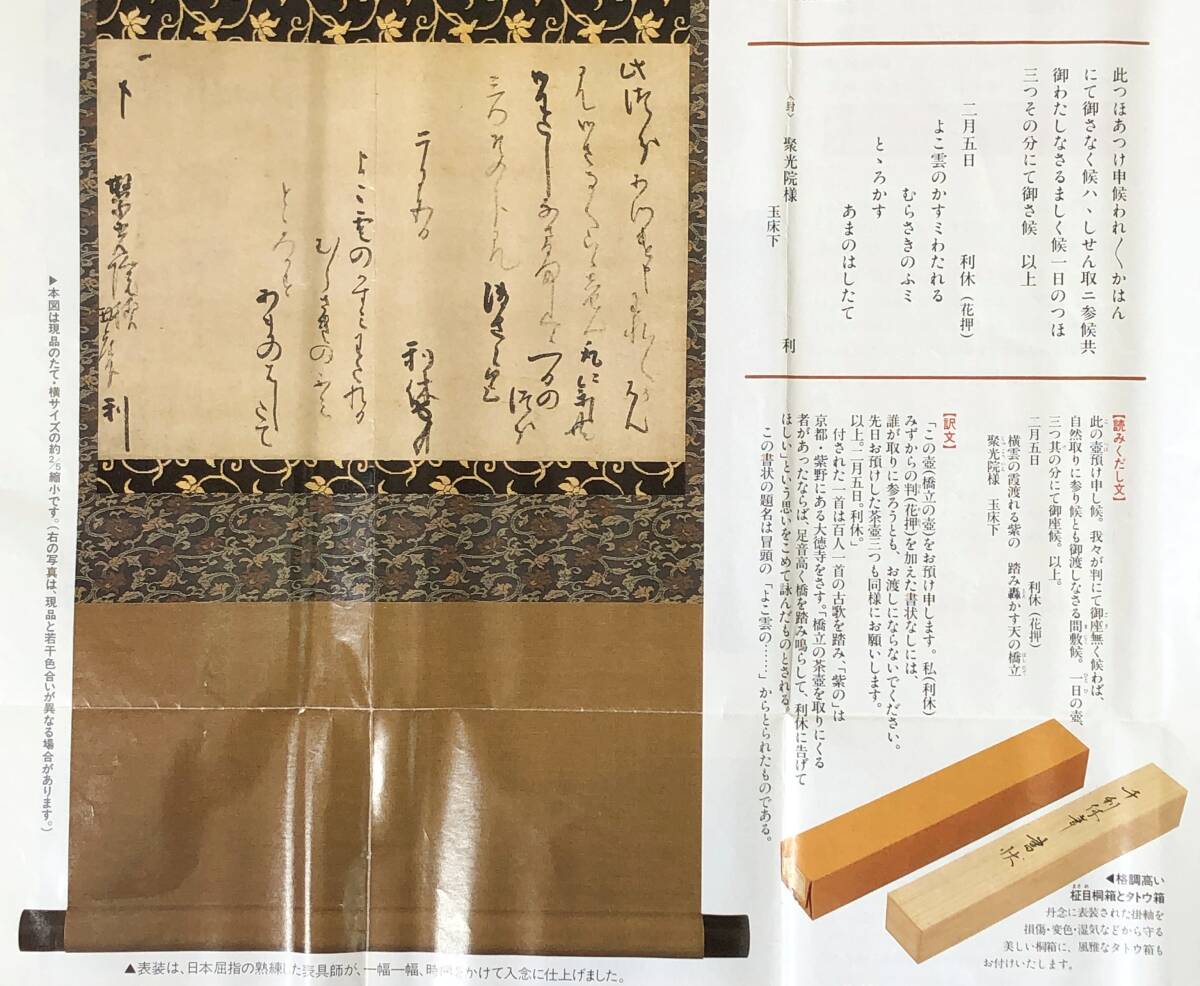 此つほあつけ申候われ〱かはん
にて御さなく候ハヽしせん取ニ参候共
御わたしなさるましく候一日のつほ
三つその分にて御さ候　以上
二月五日　利休（花押）
よこ雲のかすミわたれる
むらさきのふミ
とゝろかす
あまのはしたて
〈封〉　聚光院様　利
玉床下
【読みくだし文】
此の壺預け申し候。我々が判にて御座無く候わば、
自然取りに参り候とも御渡しなさる間敷候。一日の壺、
三つ其の分にて御座候。以上。
二月五日　利休（花押）
横雲の霞渡れる紫の　踏み轟かす天の橋立
聚光院様　玉床下
【訳文】
「この壺（橋立の壺）をお預け申します。私（利休）
みずからの判（花押）を加えた書状なしには、
誰が取りに参ろうとも、お渡しにならないでください。
先日お預けした茶壺三つも同様にお願いします。
以上。二月五日。利休。」
付された一首は百人一首の古歌を踏み、「紫の」は
京都・紫野にある大徳寺をさす。「橋立の茶壺を取りにくる
者があったならば、足音高く橋を踏み鳴らして、利休に告げて
ほしい」という思いをこめて詠んだものとされる。
この書状の題名は冒頭の「よこ雲の……」からとられたものである。
千利休筆　書状
◀格調高い
柾目桐箱とタトウ箱
丹念に表装された掛軸を
損傷・変色・湿気などから守る
美しい桐箱に、風雅なタトウ箱も
お付けいたします。
▶本図は現品のたて・横サイズの約2/5縮小です。（右の写真は、現品と若干色合いが異なる場合があります。）
▲表装は、日本屈指の熟練した表具師が、一幅一幅、時間をかけて入念に仕上げました。